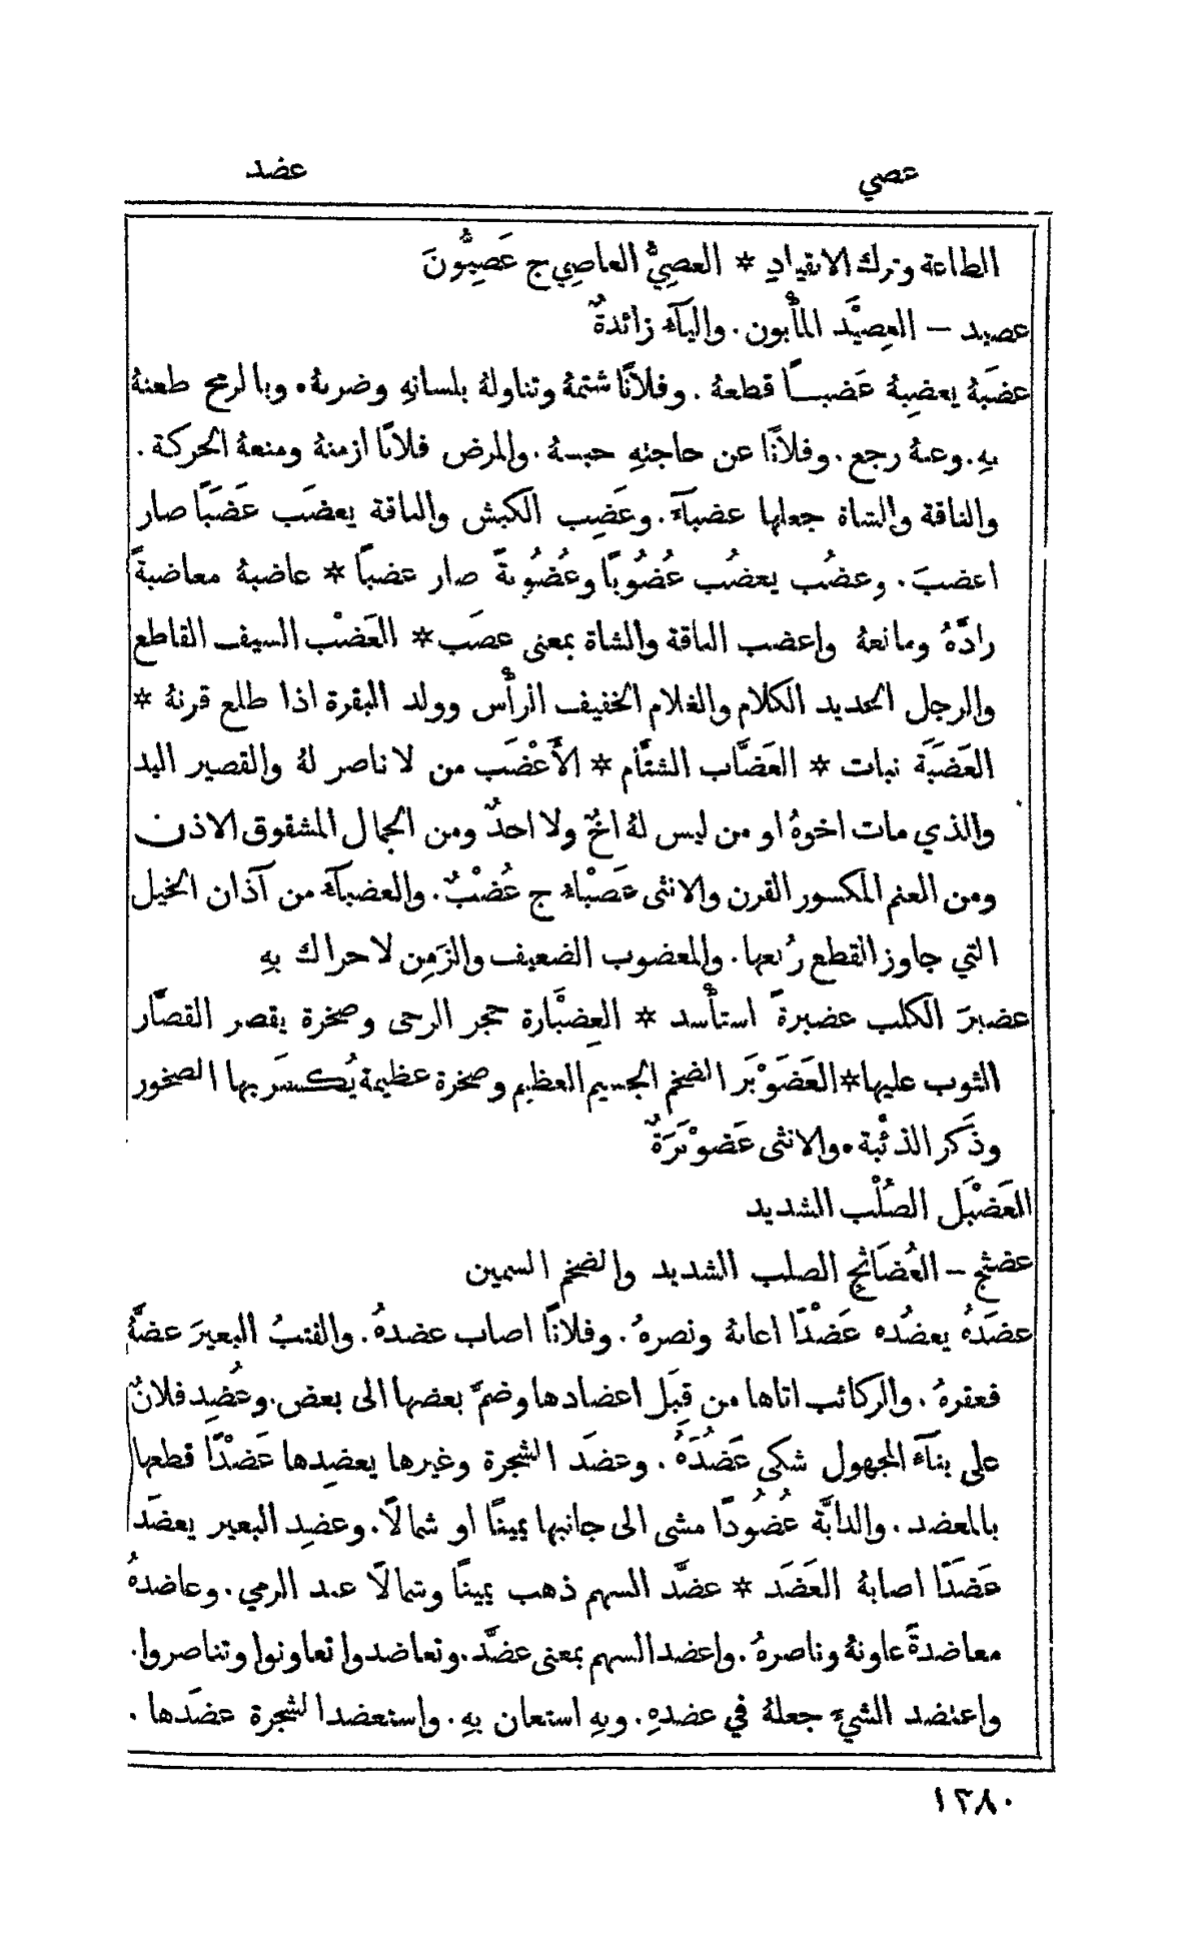 عصي
عضد
الطاعة وترك الانقياد * العصِيُّ العاصِي ج عَصِيُّونَ
عصيد – العِصيَّد المأْبون. واليآء زائدةٌ
عضَبَهُ يعضِبهُ عَضبـاً قطعهُ. وفلانًا شتمهُ وتناولهُ بلسانهِ وضربهُ. وبالرمح طعنهُ
بهِ. وعنهُ رجع. وفلانًا عن حاجتهِ حبسهُ. والمرض فلانًا ازمنهُ ومنعهُ الحركة.
والناقة والشاة جعلها عضبآءَ. وعَضِب الكبش والناقة يعضَب عَضَبًا صار
اعضبَ. وعضُب يعضُب عُضُوبًا وعُضُوبةً صار عضبًا * عاضبهُ معاضبةً
رادَّهُ ومانعهُ واعضب الناقة والشاة بمعنى عضَب * العَضْب السيف القاطع
والرجل الحديد الكلام والغلام الخفيف الرأْس وولد البقرة اذا طلع قرنهُ *
العَضَبَة نبات * العَضَّاب الشتَّام * الأَعْضَب من لا ناصر لهُ والقصير اليد
والذي مات اخوهُ او من ليس لهُ اخٌ ولا احدٌ ومن الجمال المشقوق الاذن
ومن الغنم المكسور القرن والانثى عَضْبآء ج عُضْبٌ. والعضبآء من آذان الخيل
التي جاوز القطع رُبعها. والمعضوب الضعيف والزَمِن لا حراك بهِ
عضبرَ الكلب عضبرةً استأْسد * العِضبَّارة حجر الرحى وصخرة يقصر القصَّار
الثوب عليها * العَضَوْبَر الضخم الجسيم العظيم وصخرة عظيمة يُكسَر بها الصخور
وذَكَر الذئبة. والانثى عَضوْبَرَةٌ
العَضْبَل الصُلْب الشديد
عضثج – العُضَاثِج الصلب الشديد والضخم السمين
عضَدَهُ يعضُده عَضْدًا اعانهُ ونصرهُ. وفلانًا اصاب عضدهُ. والقتبُ البعيرَ عضَّهُ
فعقرهُ. والركائب اتاها من قِبَل اعضادها وضمَّ بعضها الى بعض. وعُضِد فلانٌ
على بنآءِ المجهول شكى عَضُدَهُ. وعضَد الشجرة وغيرها يعضِدها عَضْدًا قطعها
بالمعضد. والدابَّة عُضُودًا مشى الى جانبها يمينًا او شمالًا. وعضِد البعير يعضَد
عَضَدًا اصابهُ العَضَد * عضَّد السهم ذهب يمينًا وشمالًا عند الرمي. وعاضدهُ
معاضدةً عاونهُ وناصرهُ. واعضد السهم بمعنى عضَّد. وتعاضدوا تعاونوا وتناصروا.
واعتضد الشيءَ جعلهُ في عضدهِ. وبهِ استعان بهِ. واستعضد الشجرة عضَدها.
١٣٨٠